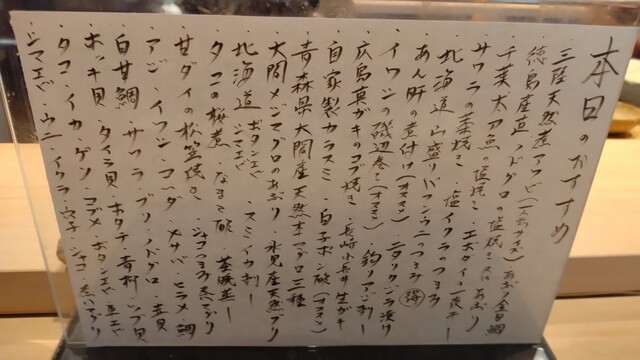 本日のおすすめ
三陸天然煮アワビ(一人前サイズ) あぶり金目鯛
徳島産直ノドグロの塩焼き 又は あぶり
千葉太刀魚の塩焼き・エボダイ一夜干ー
サワラの菜焼き 塩イクラのつまみ
北海道山盛りバフンウニのつまみ (得)
あん肝の煮付け(オススメ) ニタリクジラ漬け
イワシの磯辺巻き(オススメ) 釣りアジ刺ー
広島真ガキのコブ焼き・長崎小長井生ガキ
自家製カラスミ 白子ポン酢(オススメ)
青森県大間産天然本マグロ三種
大間メジマグロのあぶり・氷見産天然ブリ
北海道 ボタンエビ シマエビ スミイカ刺ー
タコの桜煮 なまこ酢 茶碗蒸ー
甘ダイの松笠焼き
アジ・イワシ・コハダ メサバ・ヒラメ 鯛
白甘鯛 サワラ ブリ・ノドグロ
ホッキ貝・タイラ貝・ホタテ・青柳・ツブ貝
タコ・イカ ゲソ コブメ・ボタンエビ・車エビ
シマエビ・ウニ・イクラ・穴子・シャコ